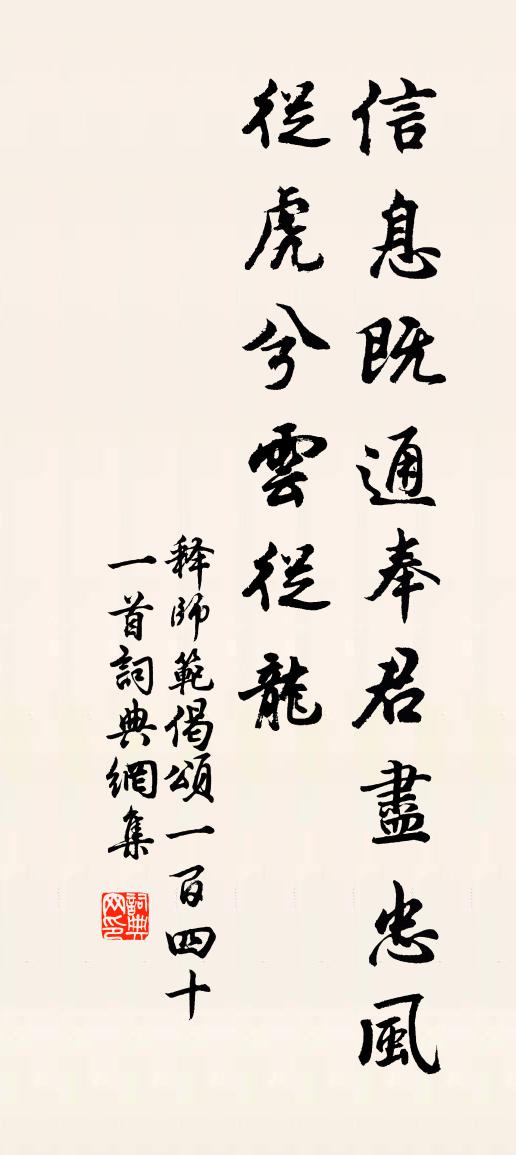 信息既通奉君盡忠風
從虎兮雲從龍
释師範偈頌一百四十
一首詞典網集
詞典网印